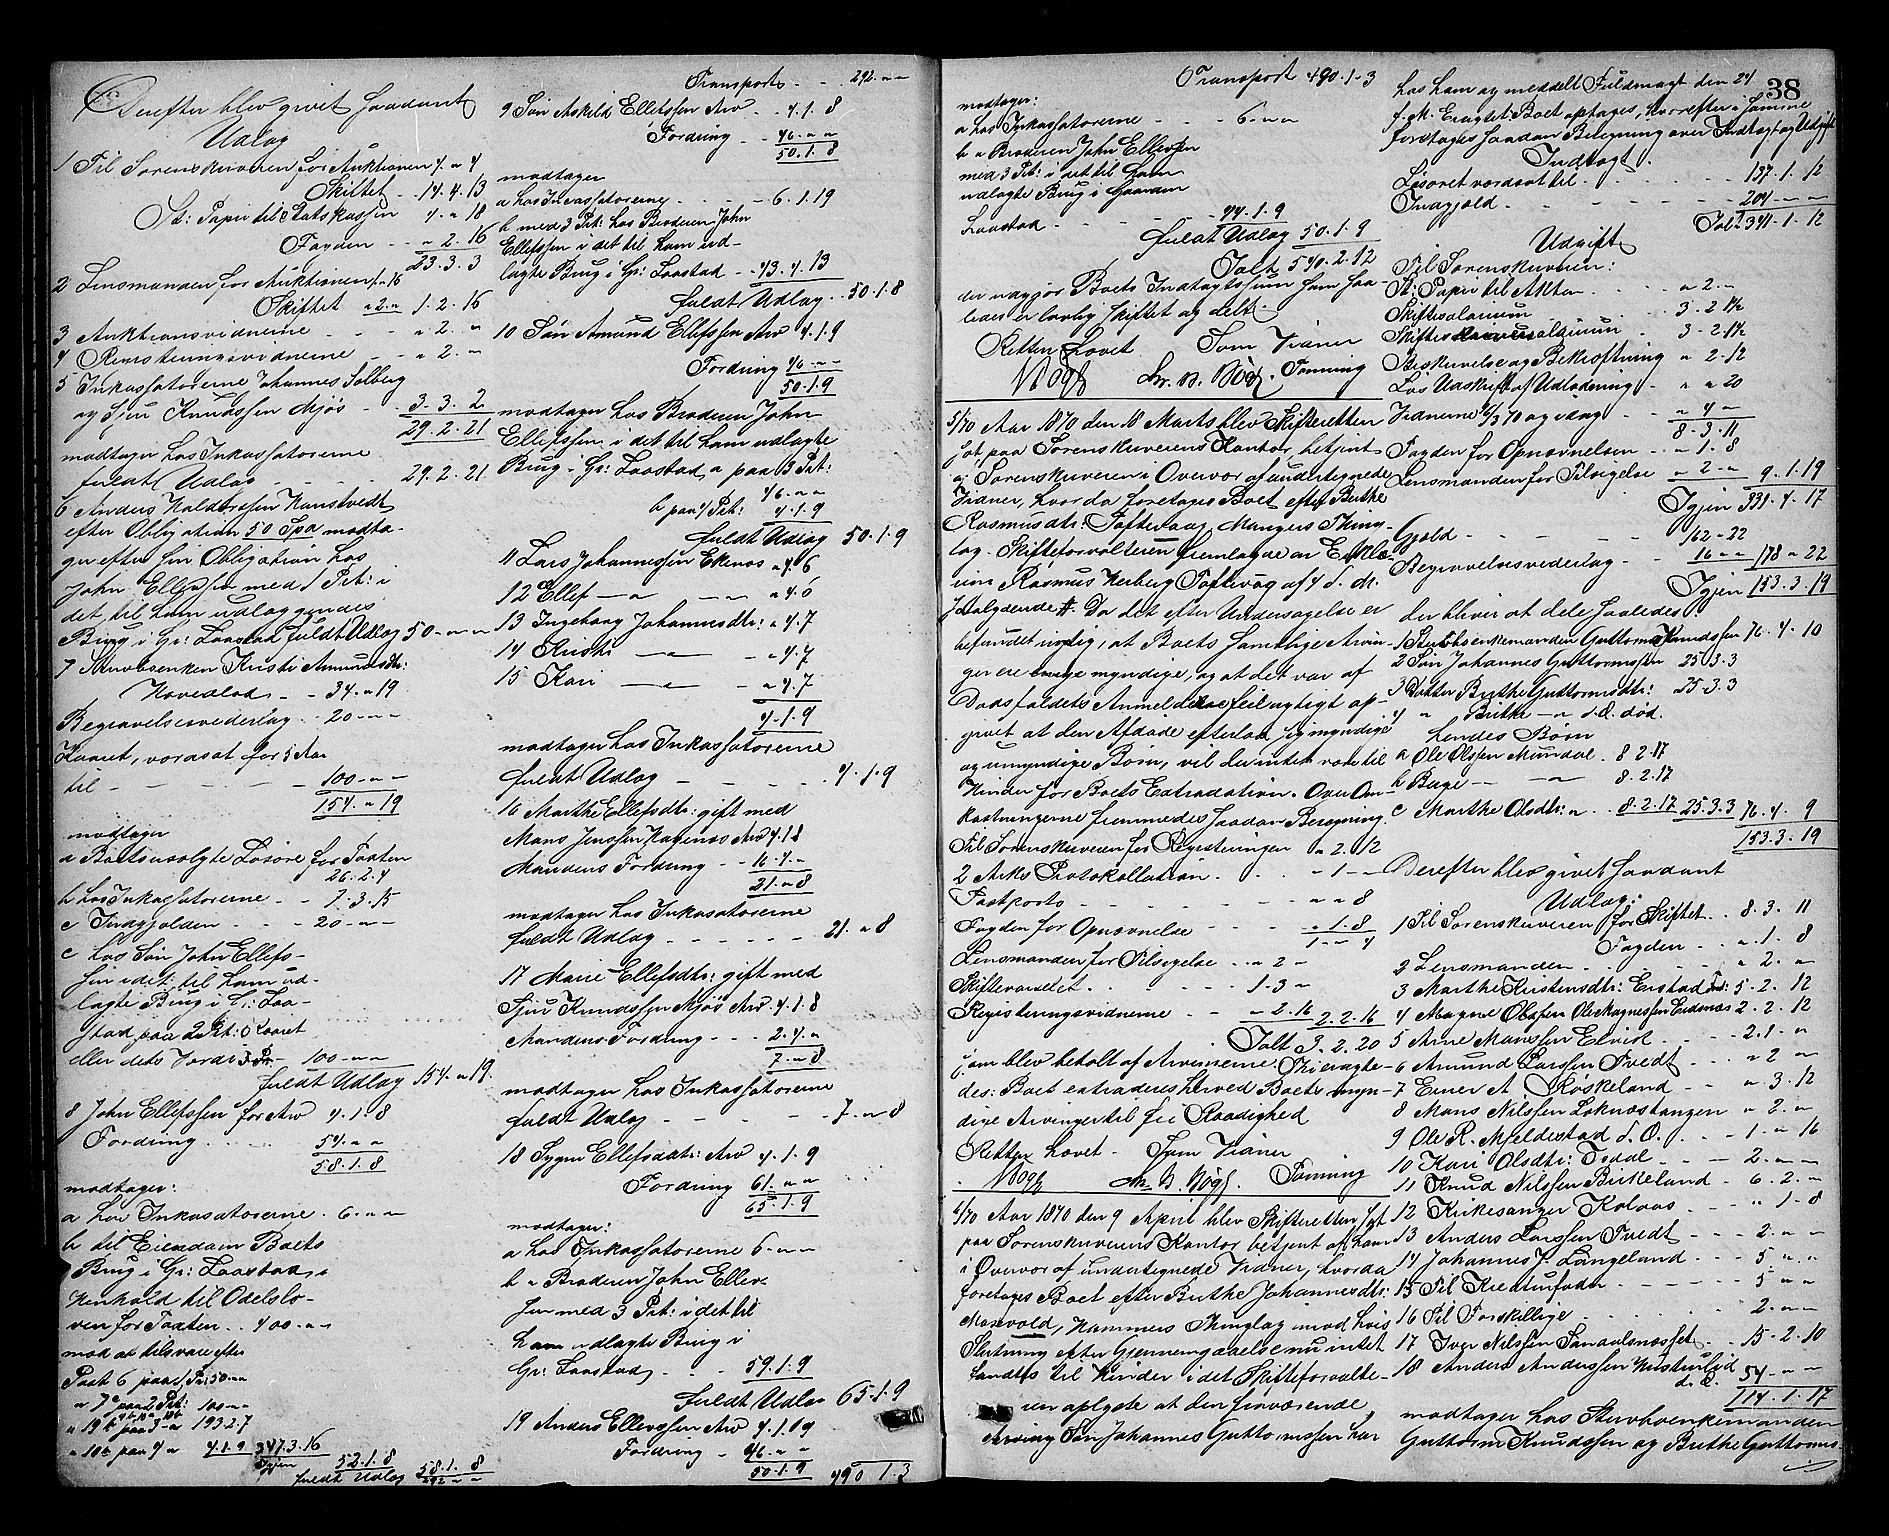 Derefter blev givet saadant
Udlæg
1 Til Sorenskriveren for Auktionen 4 " 4
Skiftet - 14.4.13
St: Papir til Statskassen 4 " 18
Fogden - - " 2.16
23.3.3
2 Lensmanden for Auktionen 1 " 16
Skiftet " 2 " 1.2.16
3 Auktionsvidnerne - - - " 2. "
4 Registeringsvidnerne - - " 2. "
5 Inkassatorerne Johannes Solberg
og Sjur Knudssen Mjøs - 3.3.2
29.2.21
modtager hos Inkassatorerne
fuldt Udlæg - - - 29.2.21
6 Anders Haldorsen
efter Obligation 50 Spd modta-
ger efter sin Obligation hos
John Ellefssen med 1 Prt: i
det til ham udlæggendes
Brug i Gr: Laastad fuldt Udlæg 50 - " - "
7 Arveenken Kristi Amundsdtr:
Hovedlod - - 34. " 19
Begravelsesvederlag . . 20 - " - "
Kaaret, værdsat for 5 Aar
til - - - - 100 - " - "
154. " 19
modtager
a Boets usolgte Løsøre for Taxten
26.2.4
b hos Inkassatorerne - - 7.3.15
c Indgjælden - - - 20 - " - "
c hos Søn John Ellefs-
sen i det til ham ud-
lagte Brug i Gr: Laa-
stad paa 2 Prt: Kaaret
eller dets Værdi - 100 - " - "
fuldt Udlæg 154. " 19
8 John Ellefssen for Arv 4.1.8
Fordring . . . 54. " "
58.1.8
modtager:
a hos Inkassatorerne . 6. " "
b til Eiendom Boets
Brug i Gr: Laastad, i
Henhold til Odelslo-
ven for Taxten . . 400 - " - "
mod at tilsvare efter
Post 6 paa 1 Prt: 50 - " "
" 7c paa 2 Prt: 100 - " "
" 19b paa 3 " 193.2.7
" 10b paa 4 " 4.1.9 347.3.16
Igjen 52.1.8
fuldt Udlæg 58.1.8
292 " "
Transport - - 292 - " "
9 Søn Askild Ellefssen Arv - - 4.1.8
Fordring - - 46 - " "
50.1.8
modtager
a hos Inkassatorerne - - - 6.1.19
b med 3 Prt: hos Broderen John
Ellefssen i det til ham ud-
lagte Brug i Gr: Laastad - - 43.4.13
fuldt Udlæg . . 50.1.8
10 Søn Amund Ellefssen Arv 4.1.9
Fordring 46 - " -
50.1.9
modtager hos Broderen John
Ellefssen i det til ham udlagte
Brug i Gr: Laastad a paa 3 Prt:
46 - " "
b paa 4 Prt: 4.1.9
fuldt Udlæg 50.1.9
11 Lars Johannessen Ekenæs " 4.6
12 Ellef - " - - " - " 4.6
13 Ingeborg Johannesdtr: " 4.7
14 Kristi - " - - " 4.7
15 Kari - " - - " 4.7
4.1.9
modtager hos Inkassatorerne
fuldt Udlæg - - - 4.1.9
16 Marthe Ellefsdtr: gift med
Mons Jenssen Arv 4.1.8
Mandens Fordring - - 16.4. "
21. " 8
modtager hos Inkasatorerne
fuldt Udlæg - - - - - 21. " 8
17 Marie Ellefsdtr: gift med
Sjur Knudssen Mjøs Arv 4.1.8
Mandens Fordring - - - 2.4. "
7. " 8
modtager hos Inkassatorerne
fuldt Udlæg - - - - 7. " 8
18 Sygni Ellefsdatr: Arv 4.1.9
Fordring 61. " "
65.1.9
modtager:
a hos Inkassatorerne 6 - " - "
b " Broderen John Ellev-
sen med 3 Prt: i det til
ham udlagte Brug i
Gr: Laastad - - - 59.1.9
fuldt Udlæg 65.1.9
19 Anders Ellevssen Arv 4.1.9
Fordring - - 46 - " "
50.1.9 490 1.3
38
Transport 490.1.3
modtager:
a hos Inkassatorerne - - - 6. " "
b " Broderen John Ellevsen
med 3 Prt: i det til ham
udlagte Brug i Gaarden
Laastad - - - 44.1.9
fuldt Udlæg 50.1.9
Ialt 540.2.12
der udgjør Boets Indtægtssum som saa-
ledes er lovlig skiftet og delt.
Retten hævet Som Vidner
Chr. B. Bøgh. Tønning
5/70 Aar 1870 den 18 Marts blev Skifteretten
sat paa Sorenskriverens Kontor, betjent
af Sorenskriveren i Overvær af undertegnede
Vidner, hvor da foretages Boet efter Brithe
Rasmusdtr: Toftevaag, Mangers Thing-
lag. Skifteforvalteren fremlagde en Erklæ-
ring Rasmus Toftevaag af 4 d. M.
saalydende #. Da det efter Undersøgelse er
befundet urigtig, at Boets samtlige Arvin-
ger ere myndige, og at det var af
Dødsfaldets Anmeldelse feilagtigt op-
givet at den Afdøde efterlod sig myndige
og umyndige Børn, vil der intet være til
Hinder for Boets Extradation. Over Om-
kostningerne fremmedes saadan Beregning
Til Sorenskriveren for Registeringen " 2.12
2 Arks Protokollation . . . " 1 - "
Postporto - - - - " " 8
Fogden for Opnævnelse - - - " 1.8
1 - " 4
Lensmanden for Tilsigelse . . " 2 - "
Skiftevæsenet . . . . . 1.3 "
Registeringsvidnerne - - " 2.16 2.2.16
Ialt 3.2.20
som blev betalt af Arvingerne. Thi eragte-
des: Boet extraderes herved Boets myn-
dige Arvinger til fri Raadighed
Retten hævet. Som Vidner
Chr. B. Bøgh. Tønning
4/70 Aar 1870 den 9 April blev Skifteretten sat
paa Sorenskriverens Kontor betjent af ham
i Overvær af undertegnede Vidner, hvorda
foretages Boet efter Brithe Johannesdtr:
Mosevold, Hammers Thinglag imod hvis
Slutning efter Gjennemgaaelse nu intet
sandtes til Hinder i det Skifteforvalte-
ren oplyste at den fraværende
Arving Søn Johannes Guttormssen har
hos ham og meddelt Fuldmagt den 24
f. M. Eragtet Boet optages, hvorefter i samme
foretages saadan Beregning over Indtægt og Udgift
Indtægt.
Løsøret værdsat til - - - - 137.1.12
Indgjæld - - - - - 204 - " -
Ialt 341.1.12
Udgift
Til Sorenskriveren:
St: Papir til Akten - - - " 2 - "
Skiftesalarium - - - 3.2 1/2
Skifteskriversalarium - - 3.2 1/2
Beskrivelse og Bekræftning " 2.12
Løs Udskrift af Udlodning - " " 20
Vidnerne 4/3 70 og idag - - " 4 "
8.3.11
Fogden for Opnævnelsen - - " 1.8
Lensmanden for Tilsigelse " 2 - " 9.1.19
Igjen 331.4.17
Gjæld - - - - 162 - 22
Begravelsesvederlag - - 16 - " 178 " 22
Igjen 153.3.19
der bliver at dele saaledes
1 Sterbeenkemanden Guttorm Knudssen 76.4.10
2 Søn Johannes Guttormssen 25.3.3
3 Datter Brithe Guttormsdtr: 25.3.3
4 " Brithe - " - d. Æ. død.
hendes Børn
a Ole Olssen Mundal . 8.2.17
b Børge - - " - 8.2.17
c Marthe Olsdtr: " . . 8.2.17 25.3.3 76.4.9
153.3.19
Derefter blev givet saadant
Udlæg:
1 Til Sorenskriveren for Skiftet . . 8.3.11
Fogden - - " . 1.8
2 Lensmanden . . . . . . " 2. "
3 Marthe Kristensdtr: Erstad - 5.2.12
4 Magne Olssen 2.2.12
5 Arne Monssen Elvik . . - - 2.1. "
6 Amund Larssen Tvedt - - - " 2 "
7 Einer A. Røskeland - - " 3.12
8 Mons Nilssen Loknæstangen " 2. "
9 Ole R. Mjeldestad d. Æ. . . - 1 - " 16
10 Kari Olsdtr: Isdal - - - 2. - "
11 Knud Nilssen Birkeland - - 6.2. "
12 Kirkesanger Kolaas - - - " 1.8
13 Anders Larssen Tvedt - - - 2. " "
14 Johannes J. Langeland - - - 5 " "
15 Til - - - - - 5 " "
16 Til Forskellige - - - - 2. " "
17 Iver Nilssen - - 15.2.10
18 Anders Andersen
d. Æ. 54 - " "
114.1.17
modtager hos Sterboenkemanden
Guttorm Knudssen og Brithe Guttorms-